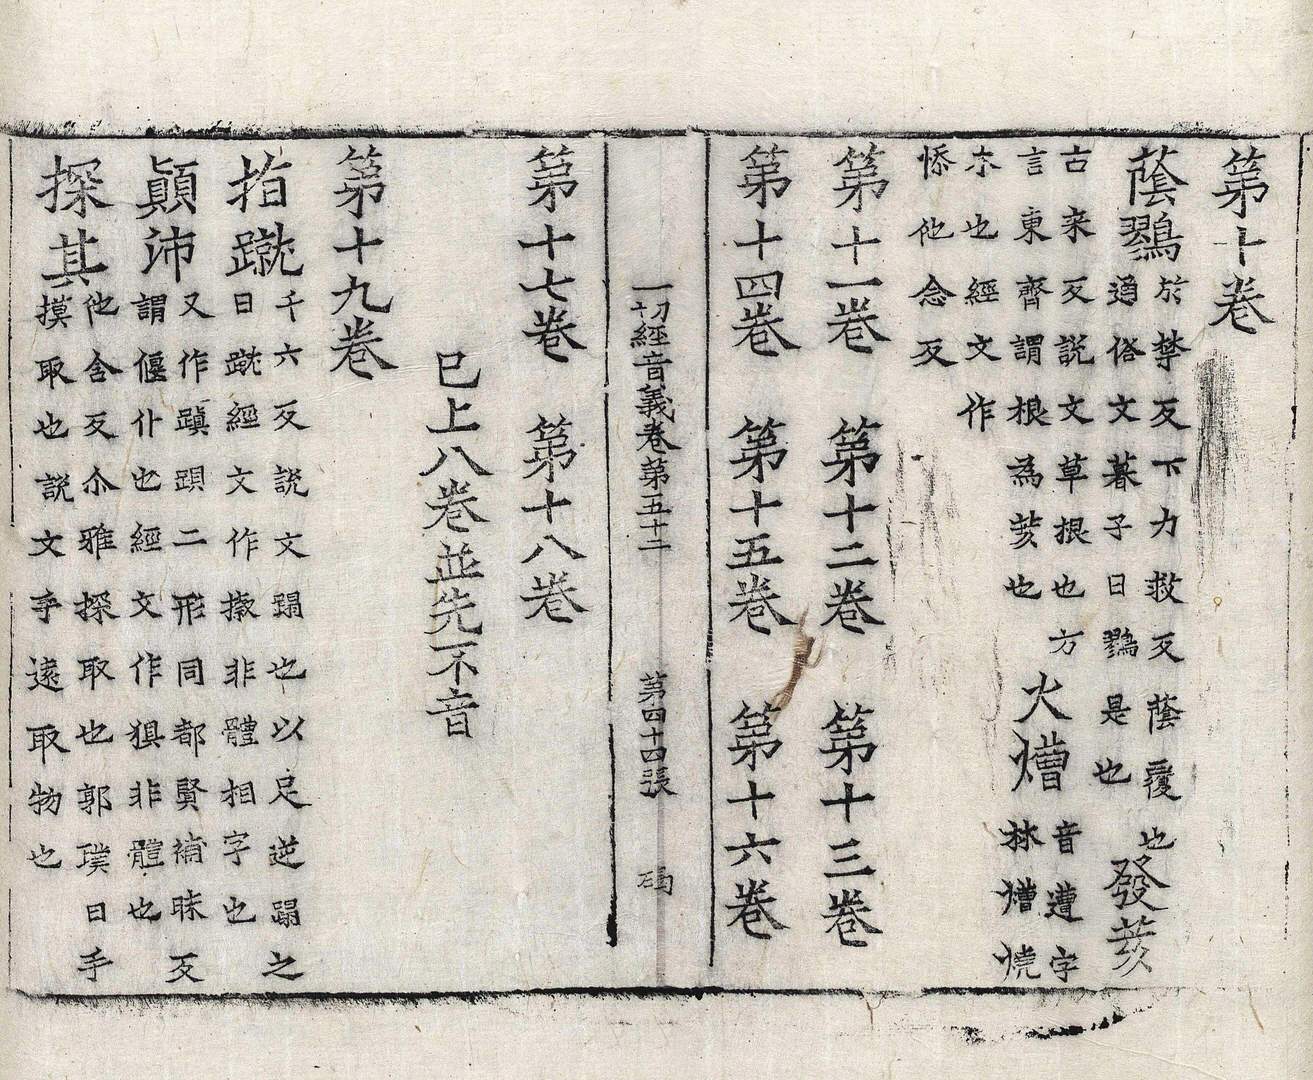 第十卷
蔭鷚於禁反下力救反蔭覆也
通俗文暮子曰鷚是也發荄
古来反説文草根也方
言東齊謂根為荄也火熸音遭字
林熸燒
木也經文作
㥏他念反
第十一卷 第十二卷 第十三卷
第十四卷 第十五卷 第十六卷
一切經音義卷第五十二 第四十四張 碣
第十七卷 第十八卷
已上八卷並先不音
第十九卷
指蹴千六反説文蹋也以足逆蹋之
曰蹴經文作揿非體相字也
顚沛又作蹎䟺二形同都賢補昧反
謂偃仆也經文作狽非體也
探其他含反尒雅探取也郭璞曰手
摸取也説文手遠取物也